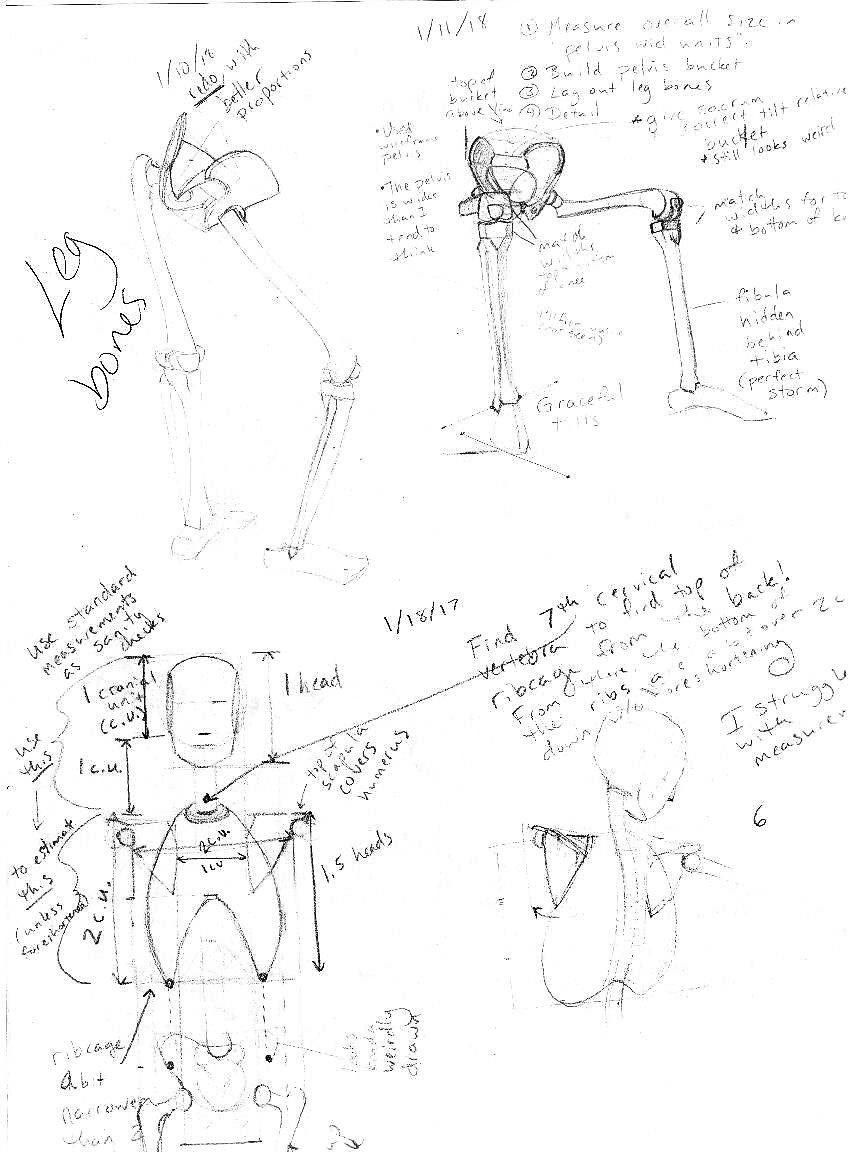 1/10/18
redo, with
better
proportions
Leg
bones
1/11/18
① Measure overall size in
"pelvis wid units".
② Build pelvis bucket
③ Lay out leg bones
④ Detail
top of
bucket
above
* give sacrum
correct tilt relative
bucket
* still looks weird
• Used
wireframe
pelvis
• The pelvis
is wider
than I
tend to
think
match
widths for
& bottom of
match
widths
Graceful
tilts
fibula
hidden
behind
tibia
(perfect
storm)
use standard
measurements
as sanity
checks
1 cranial
unit
(c.u.)
1 head
1 c.u.
use
this
to estimate
this
(unless
foreshortened)
2 c.u.
2 c.u.
1 c.u.
top of
scapula
covers
humerus
1.5 heads
ribcage
a bit
narrower
than 2
looks
kinda
weirdly
drawn
1/18/17
Find 7th cervical
vertebra to find top of
ribcage from the back!
From where the bottom of
the ribs are a bit over 2c
down w/o foreshortening
I struggle
with
measure
6